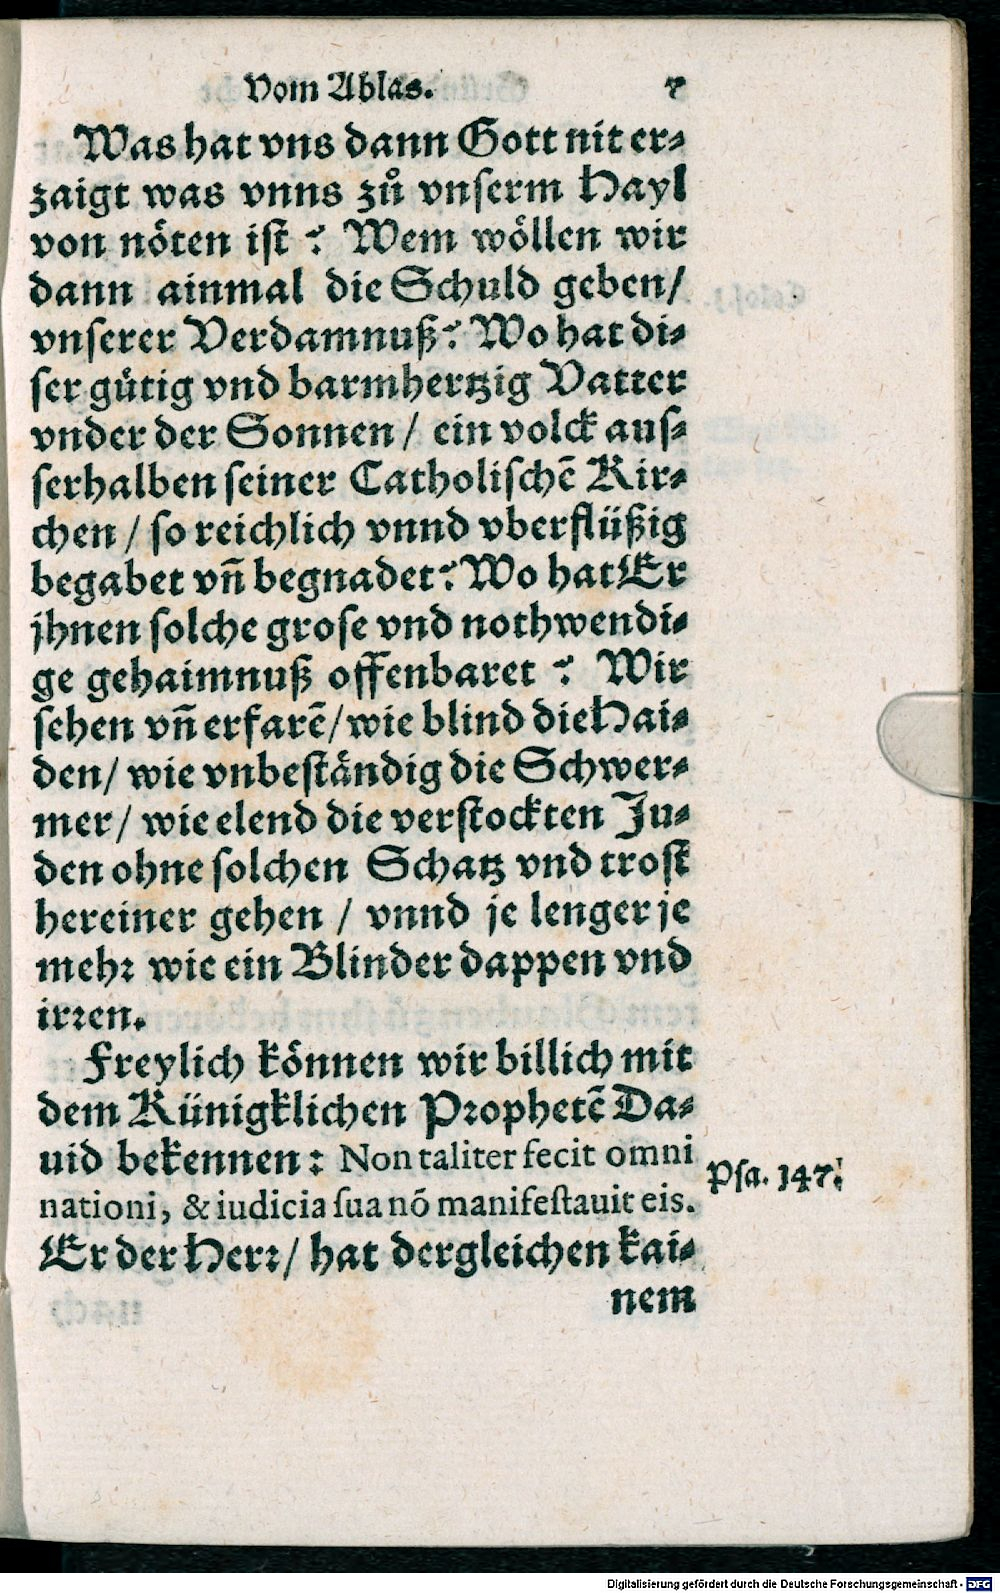 Vom Ablas. 7
Was hat vns dann Gott nit er⸗
zaigt was vnns zů vnserm Hayl
von nöten ist? Wem wöllen wir
dann ainmal die Schuld geben/
vnserer Verdamnuß? Wo hat di⸗
ser gütig vnd barmhertzig Vatter
vnder der Sonnen / ein volck aus⸗
serhalben seiner Catholischẽ Kir⸗
chen / so reichlich vnnd vberflüßig
begabet vñ begnadet? Wo hat Er
jhnen solche grose vnd nothwendi⸗
ge gehaimnuß offenbaret? Wir
sehen vñ erfarẽ/ wie blind die Hai⸗
den/ wie vnbeständig die Schwer⸗
mer/ wie elend die verstockten Ju⸗
den ohne solchen Schatz vnd trost
hereiner gehen / vnnd je lenger je
mehr wie ein Blinder dappen vnd
irren.
Freylich können wir billich mit
dem Künigklichen Prophetẽ Da⸗
uid bekennen: Non taliter fecit omni
nationi, & iudicia sua nõ manifestauit eis.
Psa. 147.
Er der Herr/ hat dergleichen kai⸗
nem
Digitalisierung gefördert durch die Deutsche Forschungsgemeinschaft - DFG